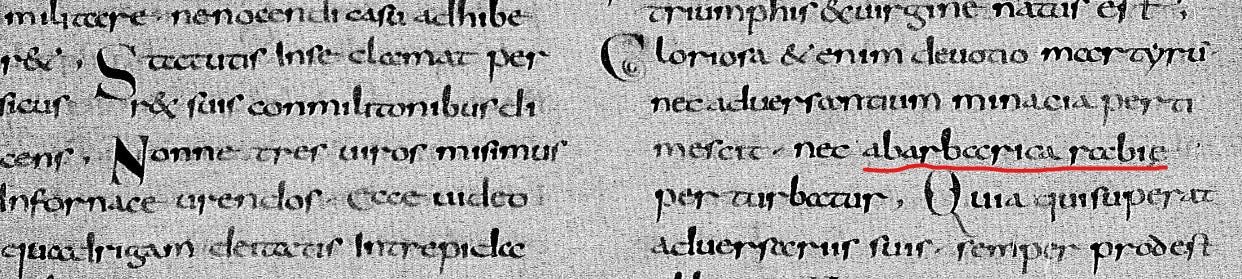 militare · nenocendi casu adhibe
r&, Statutis Inse clamat per
sicus S r& suis conmilitonibus di
cens, Nonne tres uiros misimus
Infornace urendos · Ecce uideo
quadrigam deitatis Intrepide
triumphis & uirgine natus est;
Gloriosa & enim deuotio martyru
nec aduersantium minacia perti
mescit · nec abarbarica rabie
perturbatur, Quia qui superat
aduersarius suis · semper prodest